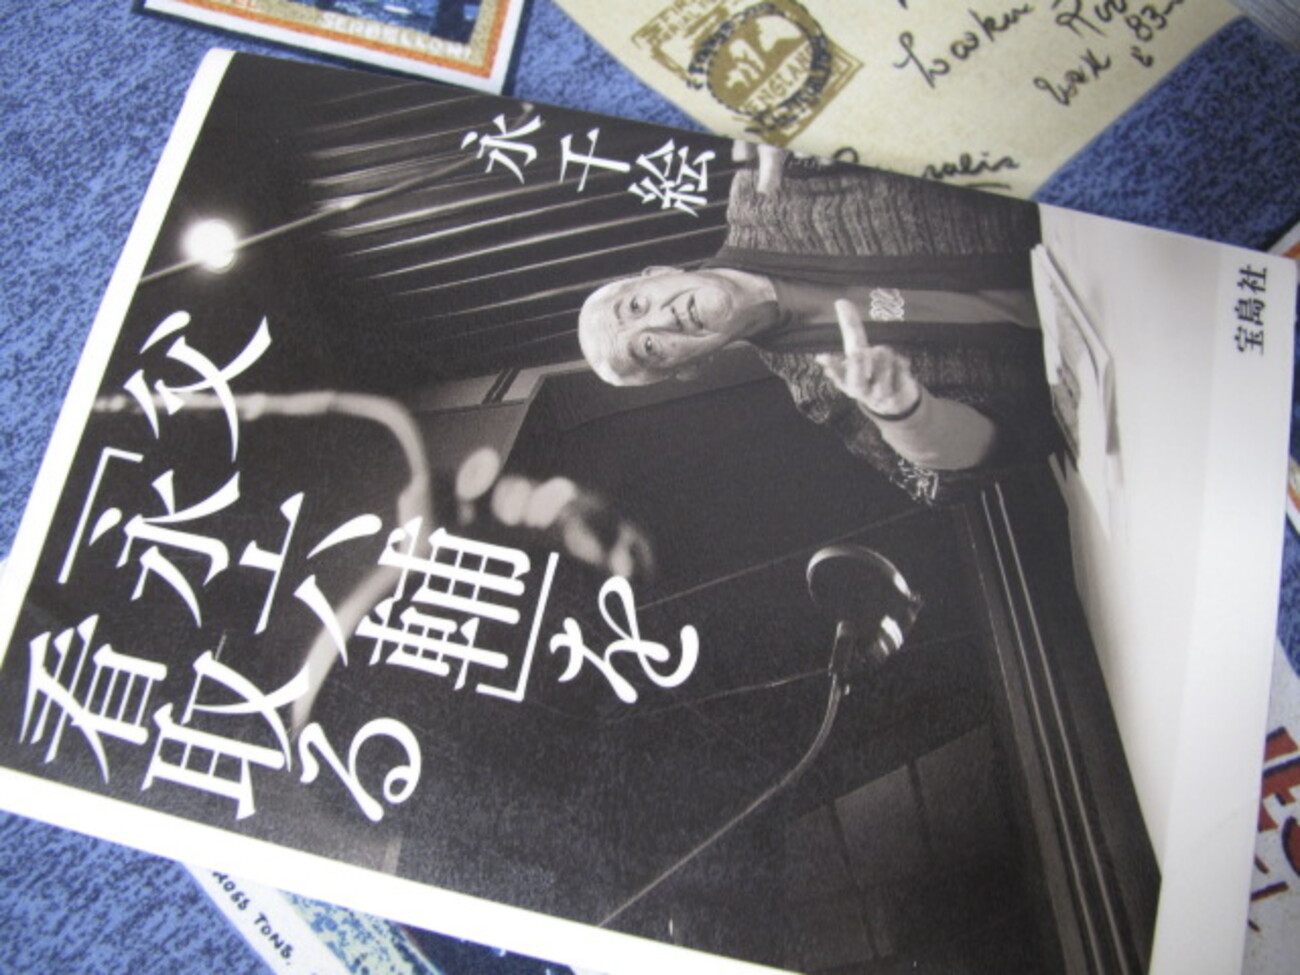 父
「永六輔」を
看取る
永千絵
宝島社
SERBELLONI
ENGLAND
ROSS TONS.